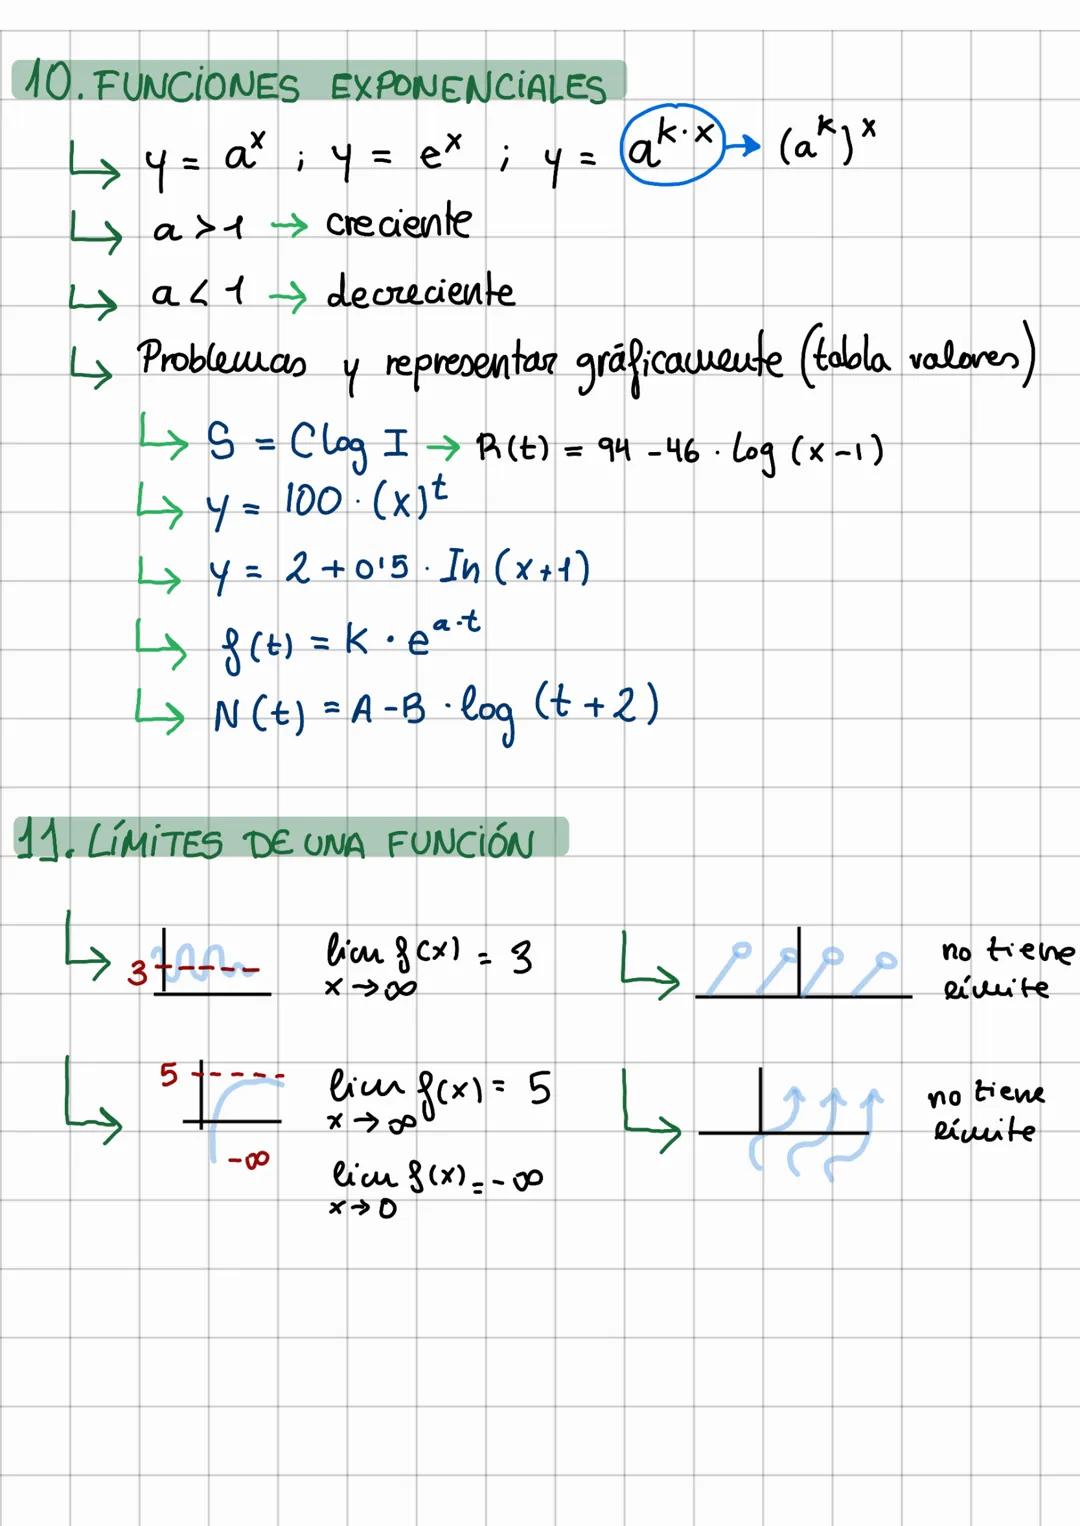 10. FUNCIONES EXPONENCIALES
y = a^x ; y = e^x ; y = a^{k·x} → (a^k)^x
a > 1 → creciente
a < 1 → decreciente
Problemas y representar gráficamente (tabla valores)
S = C log I → R(t) = 94 - 46 · log (x - 1)
y = 100 · (x)^t
y = 2 + 0'5 · In (x+1)
f(t) = K · e^{a·t}
N(t) = A - B · log (t + 2)
11. LÍMITES DE UNA FUNCIÓN
3
lim f(x) = 3
x → ∞
no tiene
límite
5
-∞
lim f(x) = 5
x → ∞
lim f(x) = -∞
x → 0
no tiene
límite